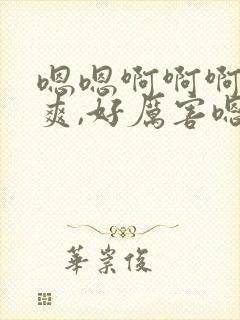 嗯嗯啊啊啊
爽,好厲害嗯
華崇俊